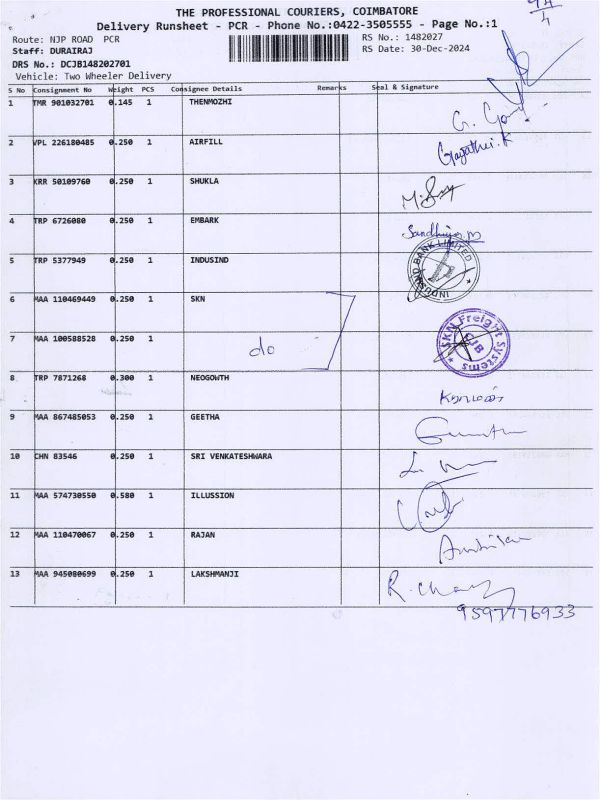 THE PROFESSIONAL COURIERS, COIMBATORE
Delivery Runsheet - PCR - Phone No.:0422-3505555 - Page No.:1
Route: NJP ROAD PCR RS No.: 1482027
Staff: DURAIRAJ RS Date: 30-Dec-2024
DRS No.: DCJB148202701
Vehicle: Two Wheeler Delivery
S No Consignment No Weight PCS Consignee Details Remarks Seal & Signature
1 TMR 901032701 0.145 1 THENMOZHI
2 VPL 226180485 0.250 1 AIRFILL Gayathri.K
3 KRR 50109760 0.250 1 SHUKLA
4 TRP 6726080 0.250 1 EMBARK
5 TRP 5377949 0.250 1 INDUSIND INDUSIND BANK LIMITED
6 MAA 110469449 0.250 1 SKN
7 MAA 100588528 0.250 1 do SKN Freight Systems CJB
8 TRP 7871268 0.300 1 NEOGOWTH
9 MAA 867485053 0.250 1 GEETHA
10 CHN 83546 0.250 1 SRI VENKATESHWARA
11 MAA 574730550 0.580 1 ILLUSSION
12 MAA 110470067 0.250 1 RAJAN
13 MAA 945080699 0.250 1 LAKSHMANJI
9597776933